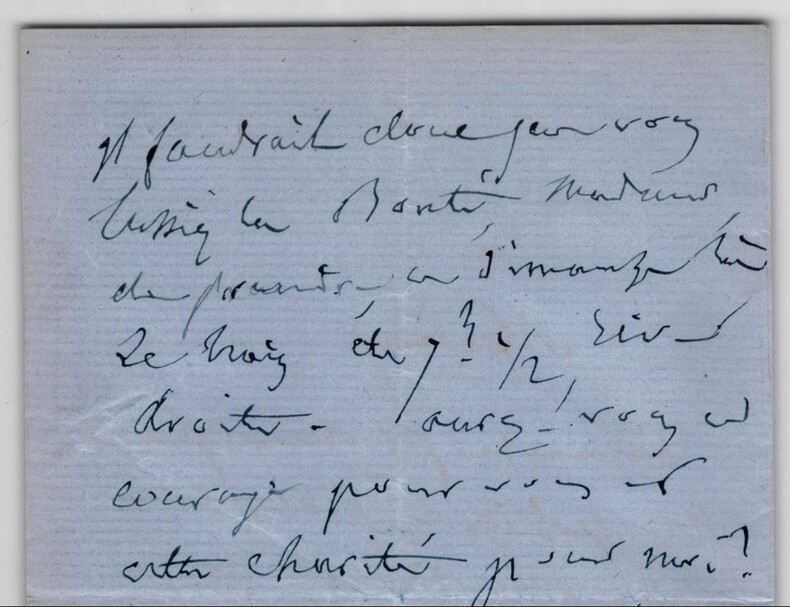 Il faudrait donc que vous
eussiez la Bonté, Madame,
de prendre, ce dimanche
le train de 7h 1/2, rive
droite. aurez-vous ce
courage pour vous et
cette charité pour moi?